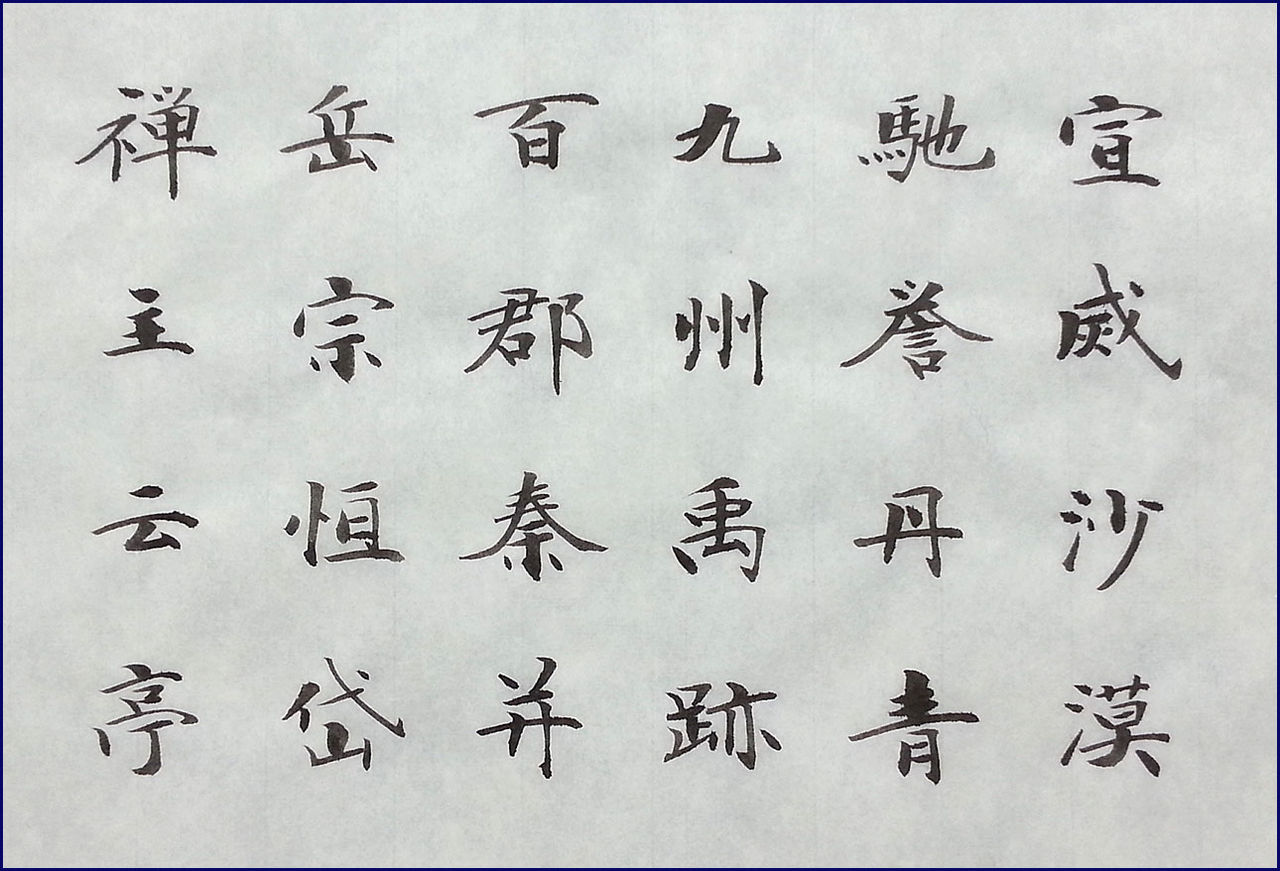 宣威沙漠
馳誉丹青
九州禹跡
百郡秦并
岳宗恒岱
禅主云亭